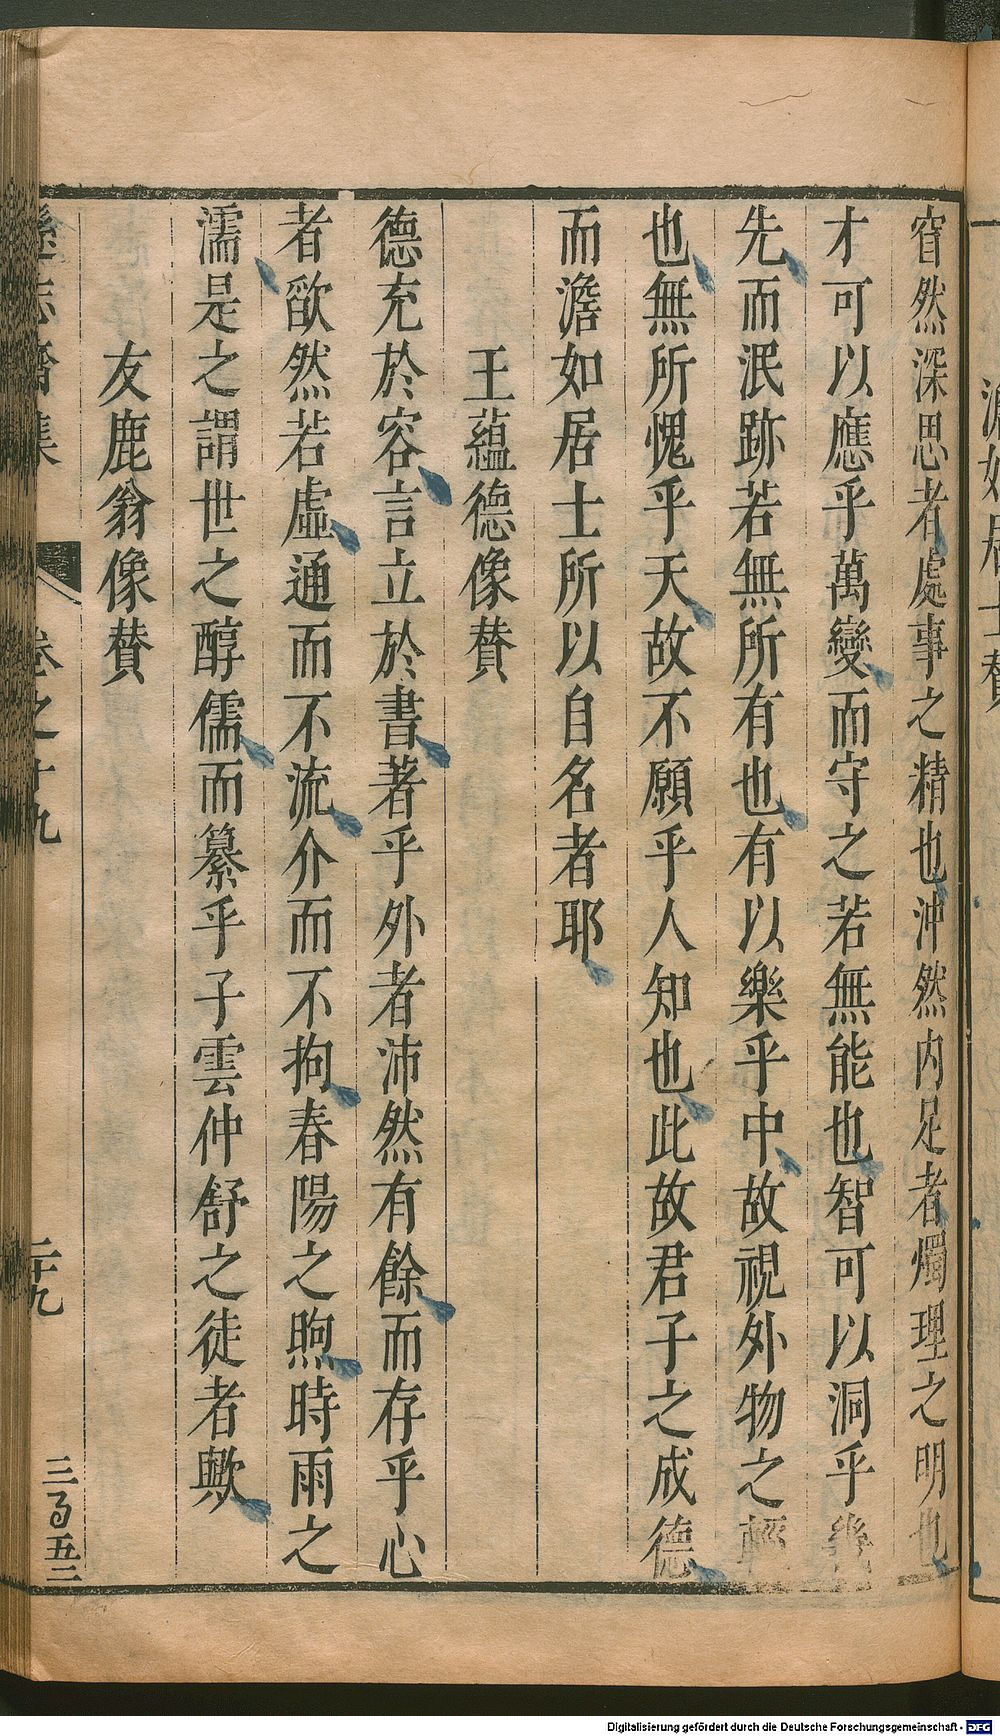 澹如居士贊
窅然深思者處事之精也沖然内足者燭理之明也
才可以應乎萬變而守之若無能也智可以洞乎幾
先而泯跡若無所有也有以樂乎中故視外物之輕
也無所愧乎天故不願乎人知也此故君子之成德
而澹如居士所以自名者耶
王蘊德像贊
德充於容言立於書著乎外者沛然有餘而存乎心
者欿然若虛通而不流介而不拘春陽之煦時雨之
濡是之謂世之醇儒而纂乎子雲仲舒之徒者歟
友鹿翁像贊
遜志齋集
卷之十九
二十九
三百五二
Digitalisierung gefördert durch die Deutsche Forschungsgemeinschaft - DFG